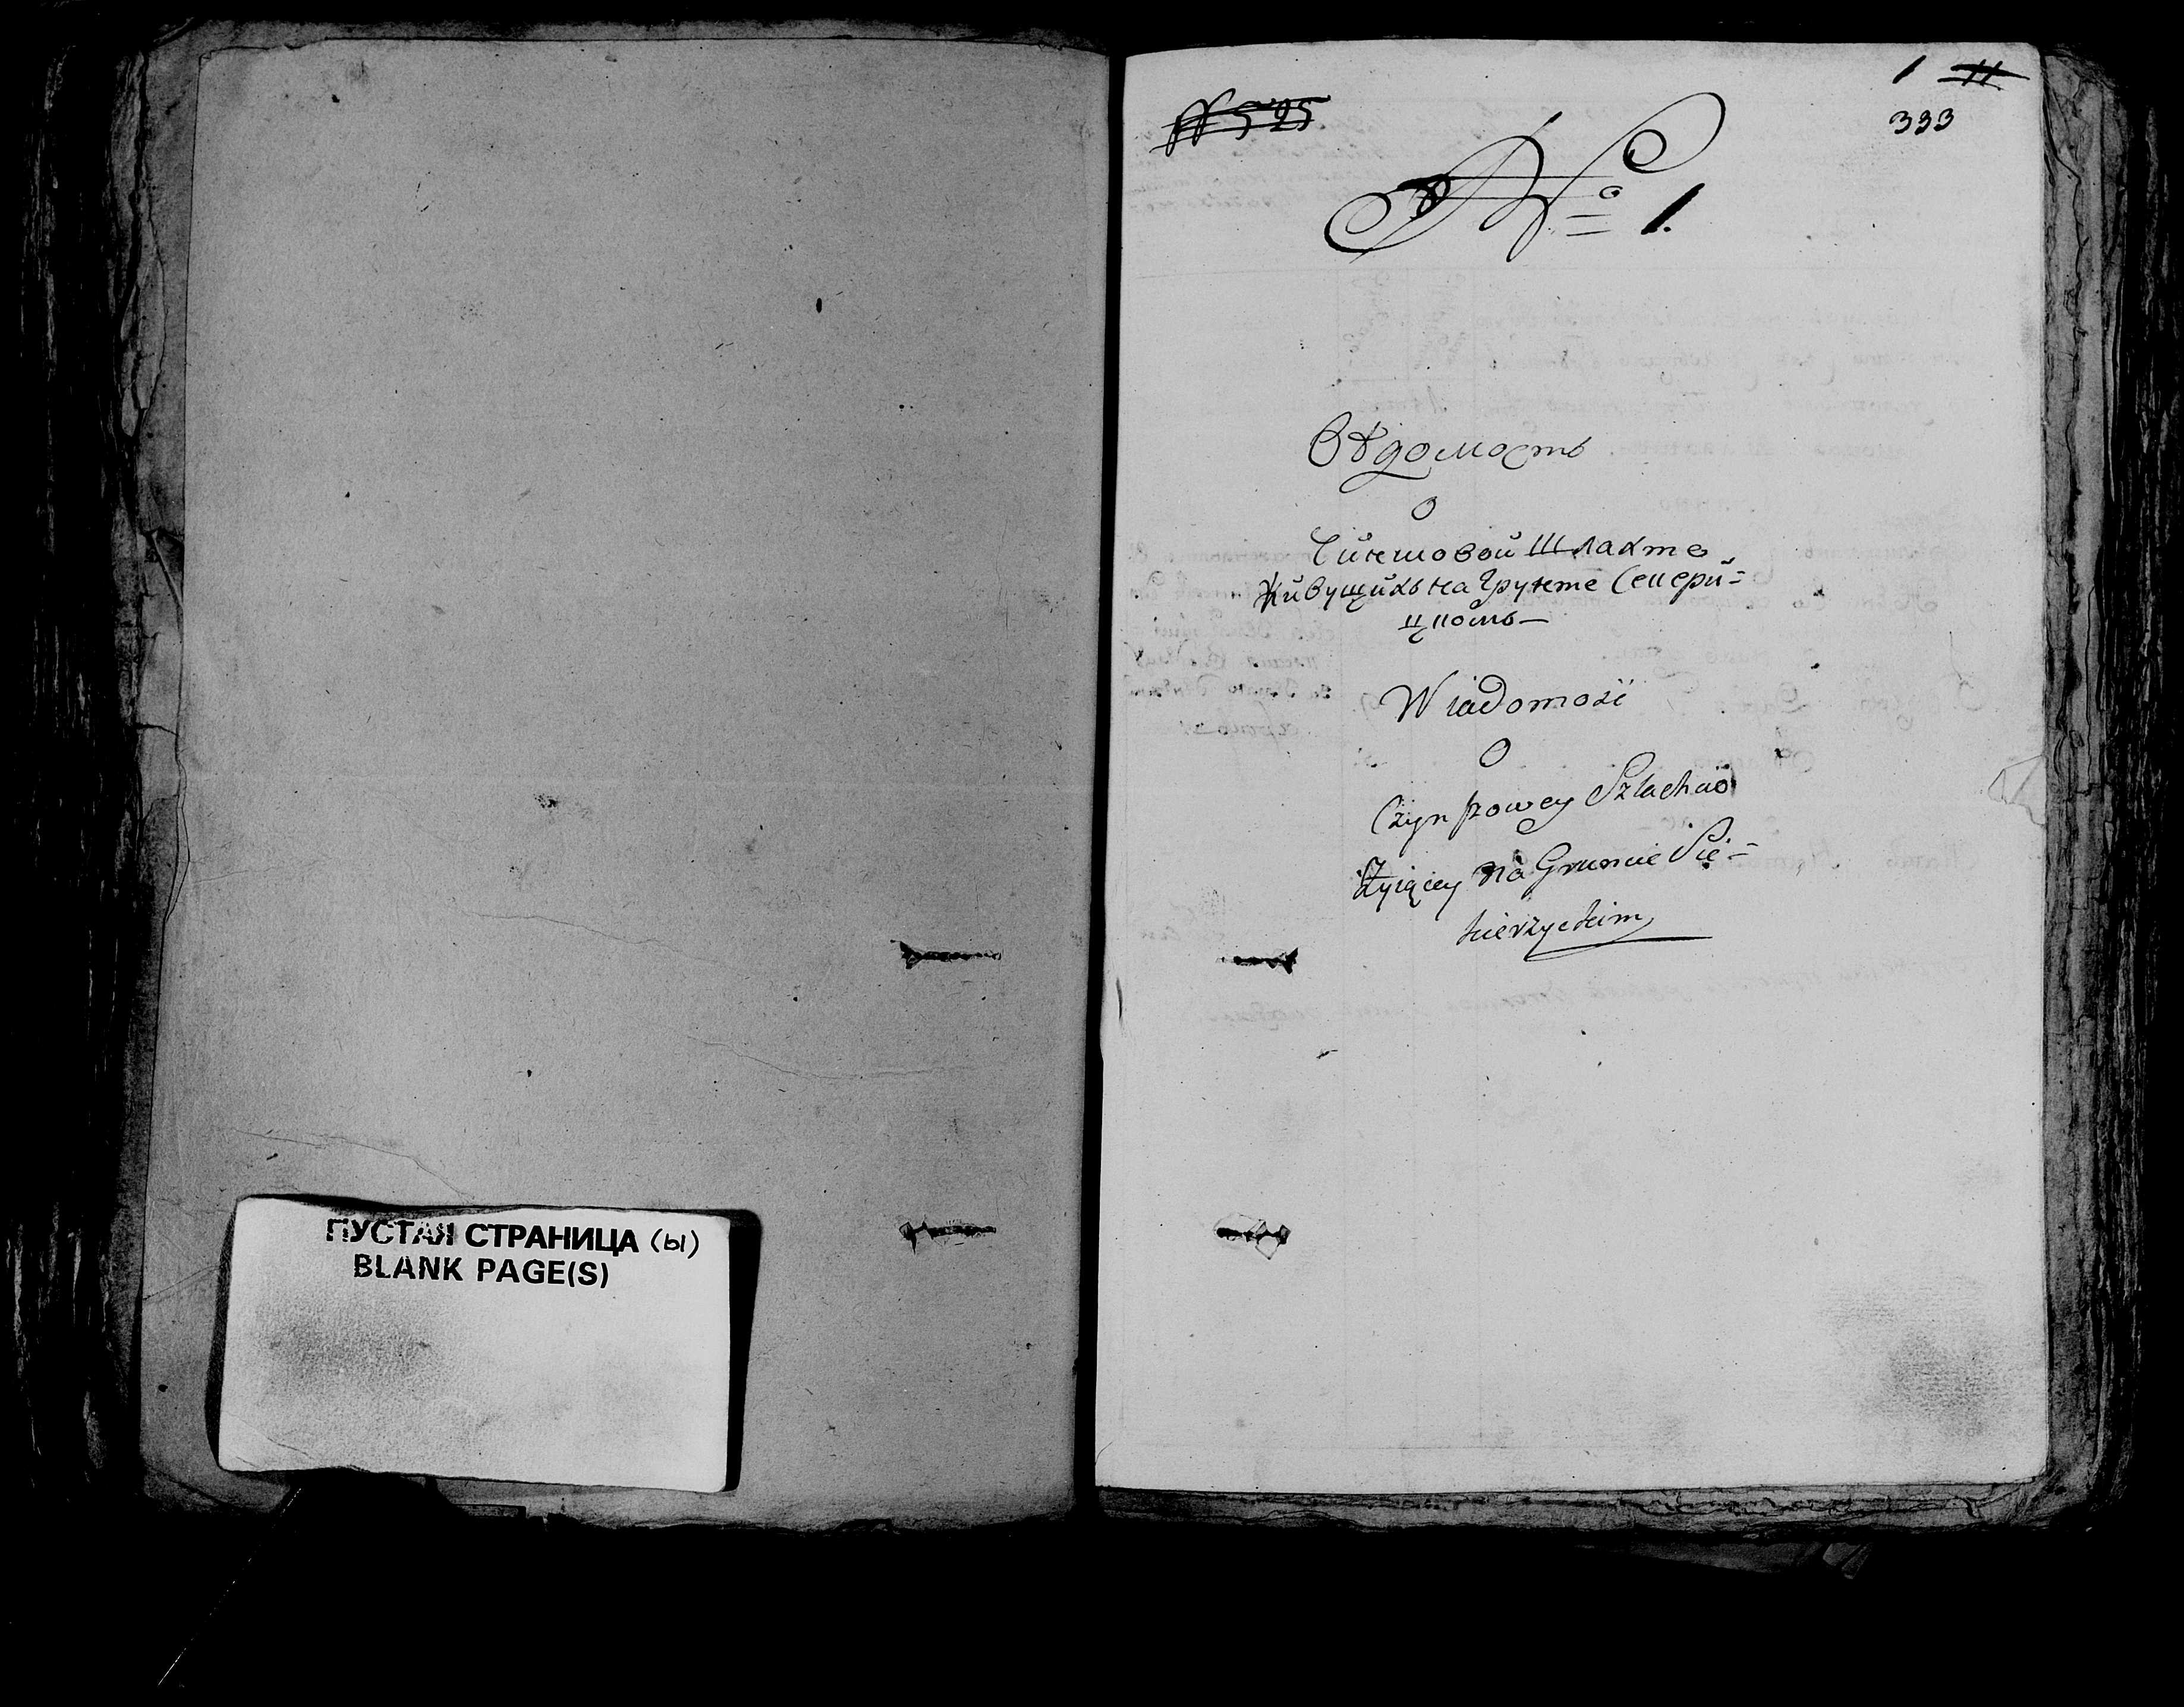 ПУСТАЯ СТРАНИЦА (ы)
BLANK PAGE(S)
1 11
333
№ 525
№ 1.
Вѣдомость
О
Чиншовой Шлахтѣ
Живущихъ на Грунте Секери=
цкомъ
Wiadomość
O
Czynszowey Szlachcie
Żyiącey na Gruncie Sie=
kierzyckim